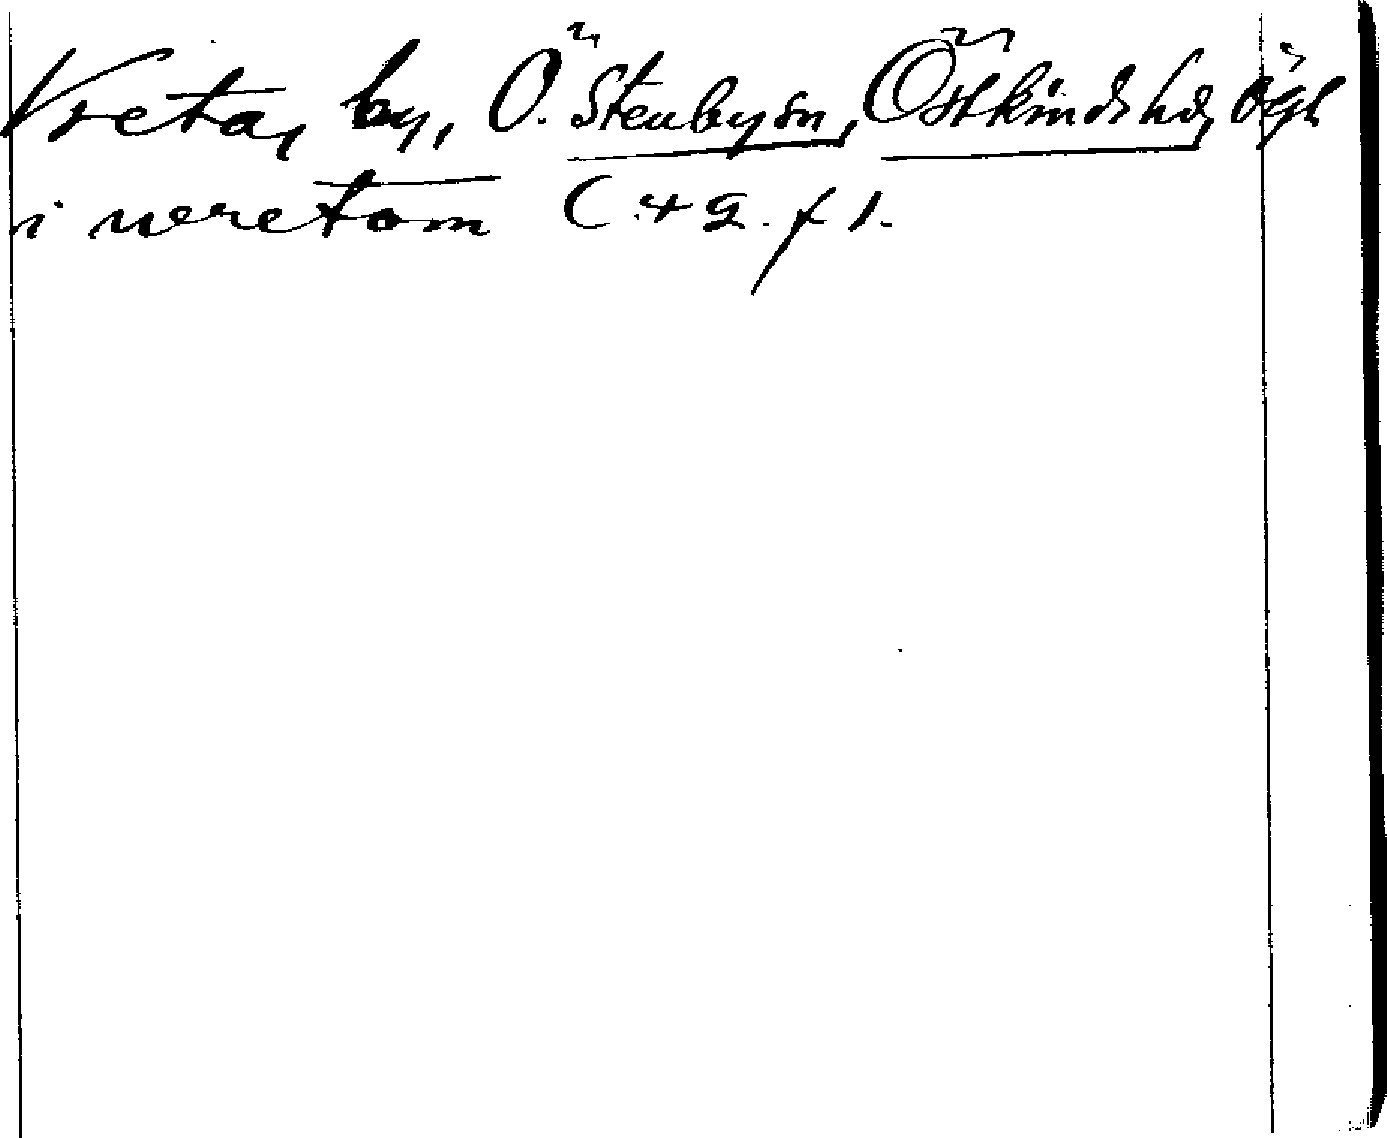 Vreta, by, Ö. Stenby sn, Östkinds hd, Ögl
i wretom C 49. f 1.